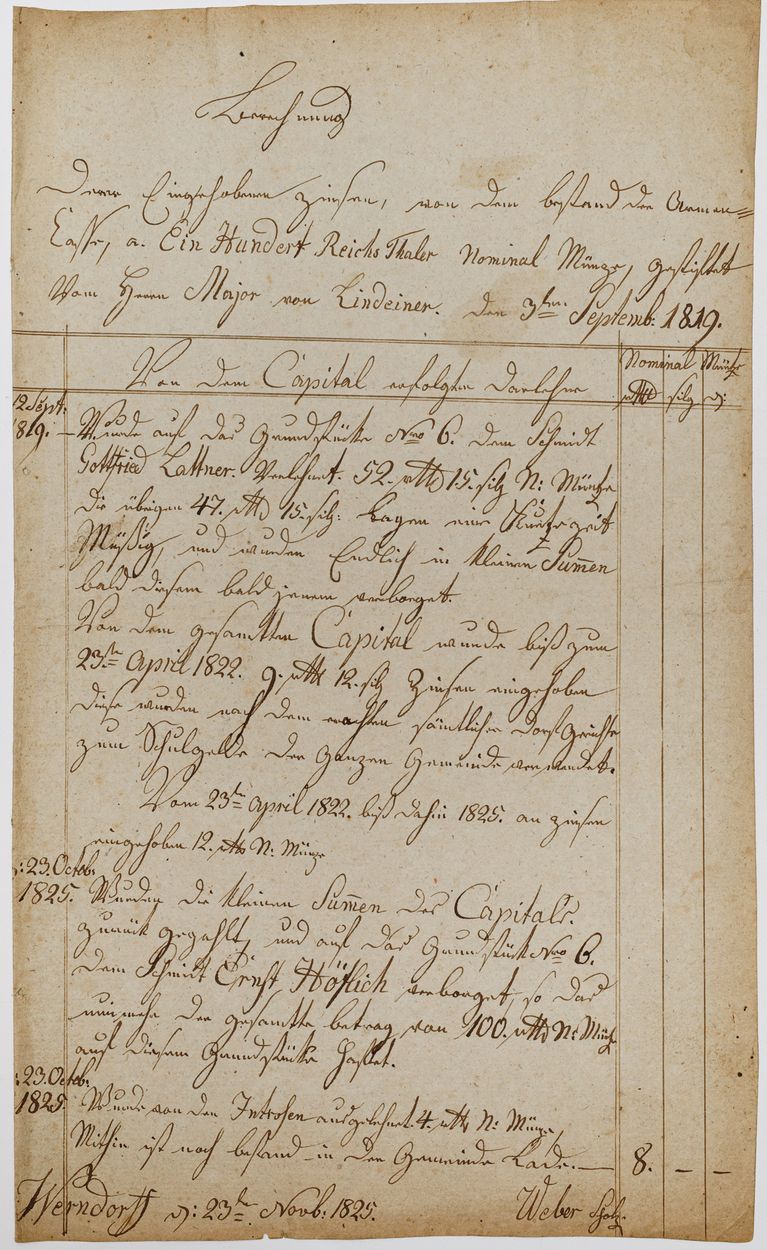 Berechnung
Derer Eingehobenen Zinsen, von dem bestand der Armen=
Casse, a. Ein Hundert Reichs Thaler Nominal Münze, gestiftet
Vom Herrn Major von Lindeiner. den 3ten Septemb: 1819.
Von dem Capital erfolgten Darlehne
Nominal Münze
rthl silg d:
12 Sept:
1819. – Wurde auf das Grundstücke Nro 6. dem Schmidt
Gottfried Lattner. Verlehnet. 52. rthl 15. silg N: Müntze
die übrigen 47. rthl 15. silg: lagen eine Kurtze zeit
Müßig, und wurden Endlich in kleinen Sum̄en
bald diesem bald jenem verborget.
Von dem gesamtten Capital wurde biß zum
23ten April 1822. 9. rthl 12. silg Zinsen eingehoben
diese wurden nach dem erachten sämtlicher Dorf Gerichte
zum Schulgelde der ganzen Gemeinde verwendet.
Vom 23ten April 1822. biß dahin 1825. an zinsen
eingehoben 12. rthl N: Münze
d: 23. Octob:
1825. Wurden die kleinen Sum̄en des Capitals.
zurück gezahlt, und auf das Grundstück Nro 6.
dem Schmidt Ernst Höflich verborget, so das
nunmehr der gesamtte betrag von 100. rthl N: Müntze
auf diesem Grundstücke haftet.
: 23. Octob:
1825 Wurde von den Intressen ausgelehnet 4. rthl N: Münze,
Mithin ist noch bestand in der Gemeinde Lade. — 8. – –
Werndorff d: 23ten Novb: 1825. Weber Scholz.